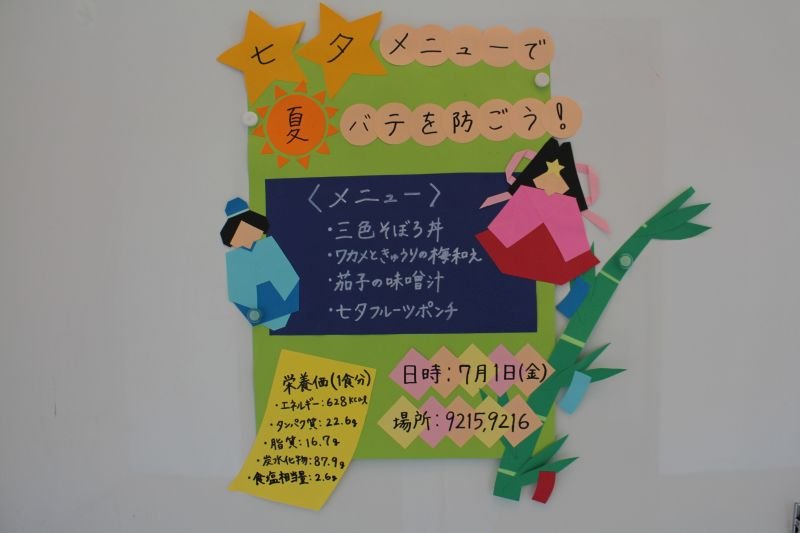 七夕メニューで
夏バテを防ごう!
〈メニュー〉
・三色そぼろ丼
・ワカメときゅうりの梅和え
・茄子の味噌汁
・七夕フルーツポンチ
栄養価(1食分)
・エネルギー:628kcal
・タンパク質:22.6g
・脂質:16.7g
・炭水化物:87.9g
・食塩相当量:2.6g
日時:7月1日(金)
場所:9215,9216